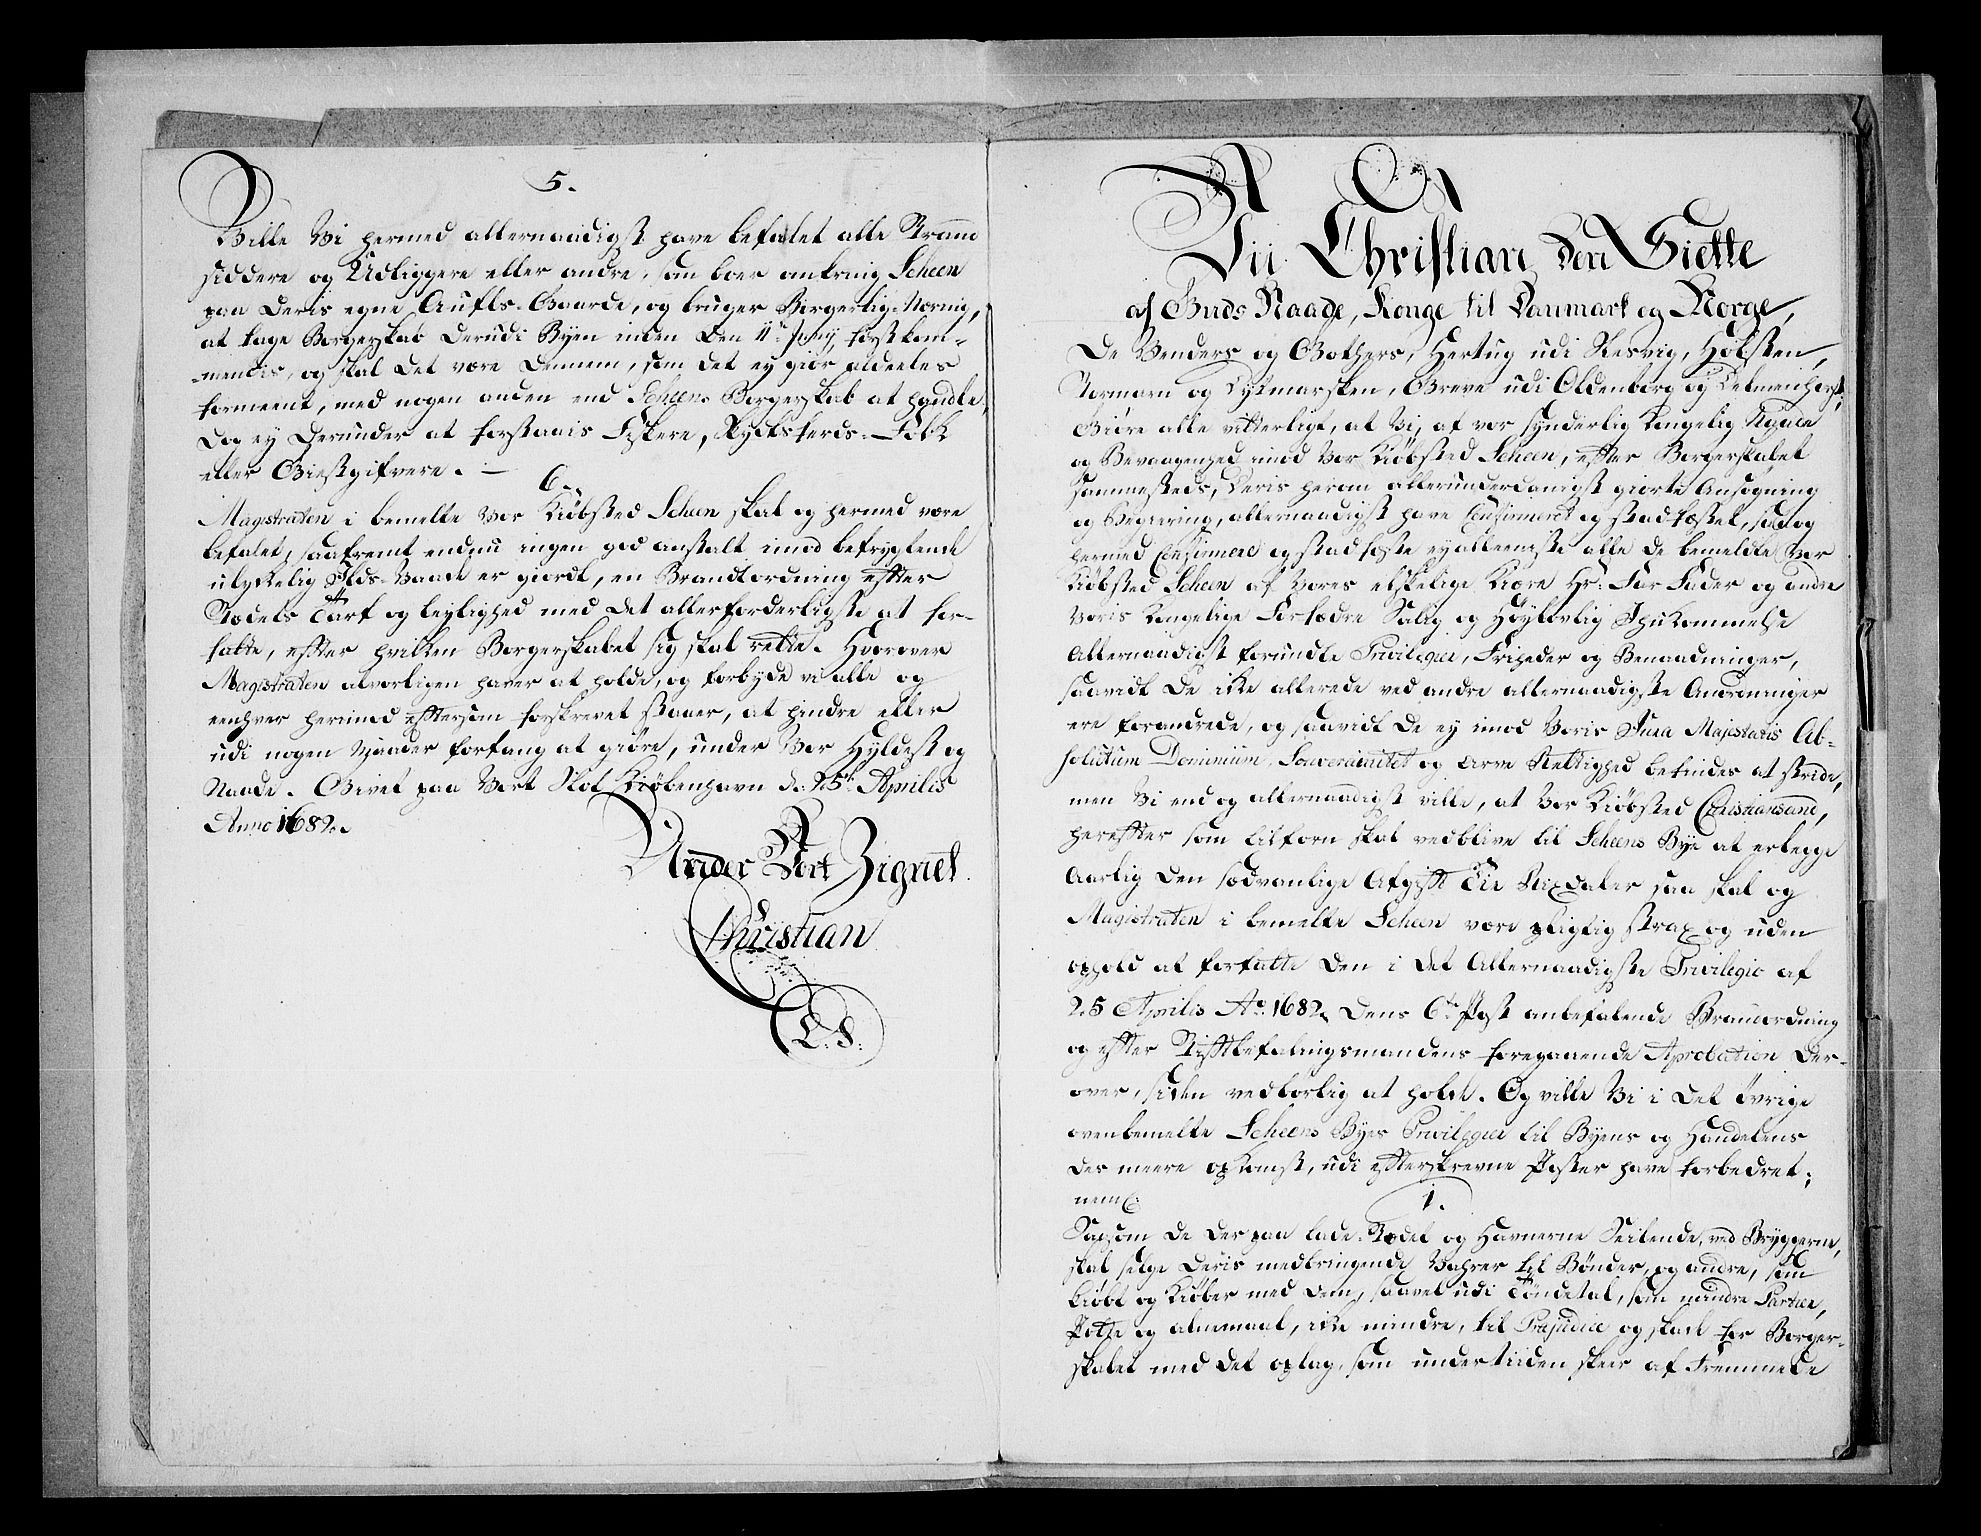 5.
Ville Vi hermed allernaadigst have befalet alle Strand
siddere og Udliggere eller andre, som boer omkring Scheen
paa deris egne Aufls-Gaarde, og bruger Borgerlig Næring,
at tage Borgerskab derudi Byen inden den 11te Juny først kom-
mendis, og skal det være dennem, som det ey giør aldeeles
formeent, med nogen anden end Scheens Borgerskab at handle,
dog ey derunder at forstaais Fiskere, Skydsferds-Folk
eller Giestgifvere. —
6.
Magistraten i bemelte Vor Kiøbsted Scheen skal og hermed være
befalet, saafremt endnu ingen god anstalt imod befrygtende
ulykkelig Ilds-Vaade er giordt, en Brandtordning efter
Stedets Tarf og leylighed med det allerforderligste at for-
fatte, efter hvilken Borgerskabet sig skal rette. Hvorover
Magistraten alvorligen haver at holde, og forbyde vi alle og
eenhver herimod eftersom forskrevet staaer, at hindre eller
udi nogen Maader forfang at giøre, under Vor Hyldest og
Naade. Givet paa Vort Slot Kiøbenhavn d. 25t Aprilis
Anno 1682.
Under Vort Zignet.
Christian
L. S.
Vii Christian den Siette
af Guds Naade, Konge til Danmark og Norge,
De Venders og Gothers, Hertug udi Slesvig, Holsten,
Stormarn og Dytmarsken, Greve udi Oldenborg og Delmenhorst,
Giøre alle vitterligt, at Vi, af vor synderlig Kongelig Naade
og Bevaagenhed imod Vor Kiøbsted Scheen, efter Borgerskabet
sammesteds, deris herom allerunderdanigst giorte Ansøgning
og Begiering, allernaadigst have Confirmeret og stadfæstet, saa og
hermed Confirmere og stadfæste eyalleeniste alle de bemeldte Vor
Kiøbsted Scheen af Vores elskelige Kiære Hr: Far Fader og andre
Voris Kongelige Forfædre Salig og Høylovlig Ihukommelse
Allernaadigst forundte Privilegier, Friheder og Benaadninger,
saavidt de ikke allerede ved andre allernaadigste Anordninger
ere forandrede, og saavidt de ey imod Voris Jura Majestatis Ab-
solutum Dominium, Souverainitet og Arve Rettighed befindes at stride,
men Vi end og allernaadigst ville, at Vor Kiøbsted Christiansand,
herefter som tilforn skal vedblive til Scheens Bye at erlegge
Aarlig den sædvanlige Afgift Tie Rixdaler saa skal og
Magistraten i bemelte Scheen være pligtig strax og uden
ophold at forfatte den i det Allernaadigste Privilegio af
25 Aprilis Ao. 1682. Dens 6te Post anbefalende Brandordning
og efter Stiftbefalingsmandens foregaaende Aprobation der-
over, siden vedbørlig at holde. Og ville Vi i det øvrige
ovenbemelte Scheens Byes Privilegier til Byens og Handelens
des meere opkomst, udi efterskrevne Poster have forbedret;
neml:
1.
Saasom de der paa lade-Stedet og Havnerne Seilende, ved Bryggerne,
skal selge deris medbringende Vahrer til Bønder, og andre, som
kiøbt og Kiøber med dem, saavel udi Tøndetal, som mindre Partier,
Potte og alnemaal, ikke mindre, til Præjudice og skade for Borger-
skabet med det oplag, som undertiiden skeer af Fremmede